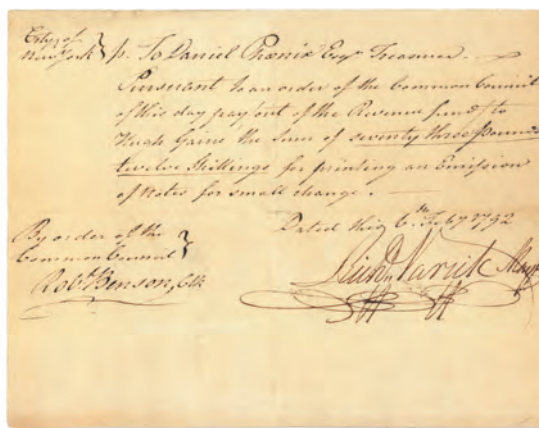 City of
New York } ss. To Daniel Phœnix Esqr. Treasurer.
Pursuant to an order of the Common Council
of this day pay out of the Revenue fund to
Hugh Gaine the Sum of seventy three Pounds
twelve Shillings for printing an Emission
of Notes for small change.
Dated this 6th. Feby 1792
By order of the
Common Council }
Robt. Benson, Clk
Richd. Varick Mayr